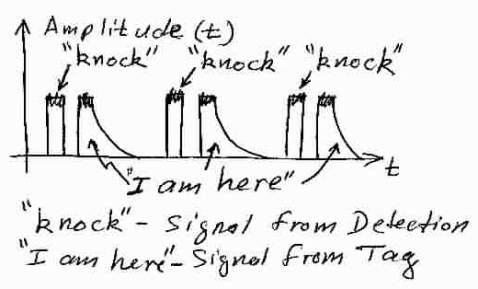 Amplitude (t)
"knock" "knock" "knock"
t
"I am here"
"knock" - Signal from Detection
"I am here" - Signal from Tag